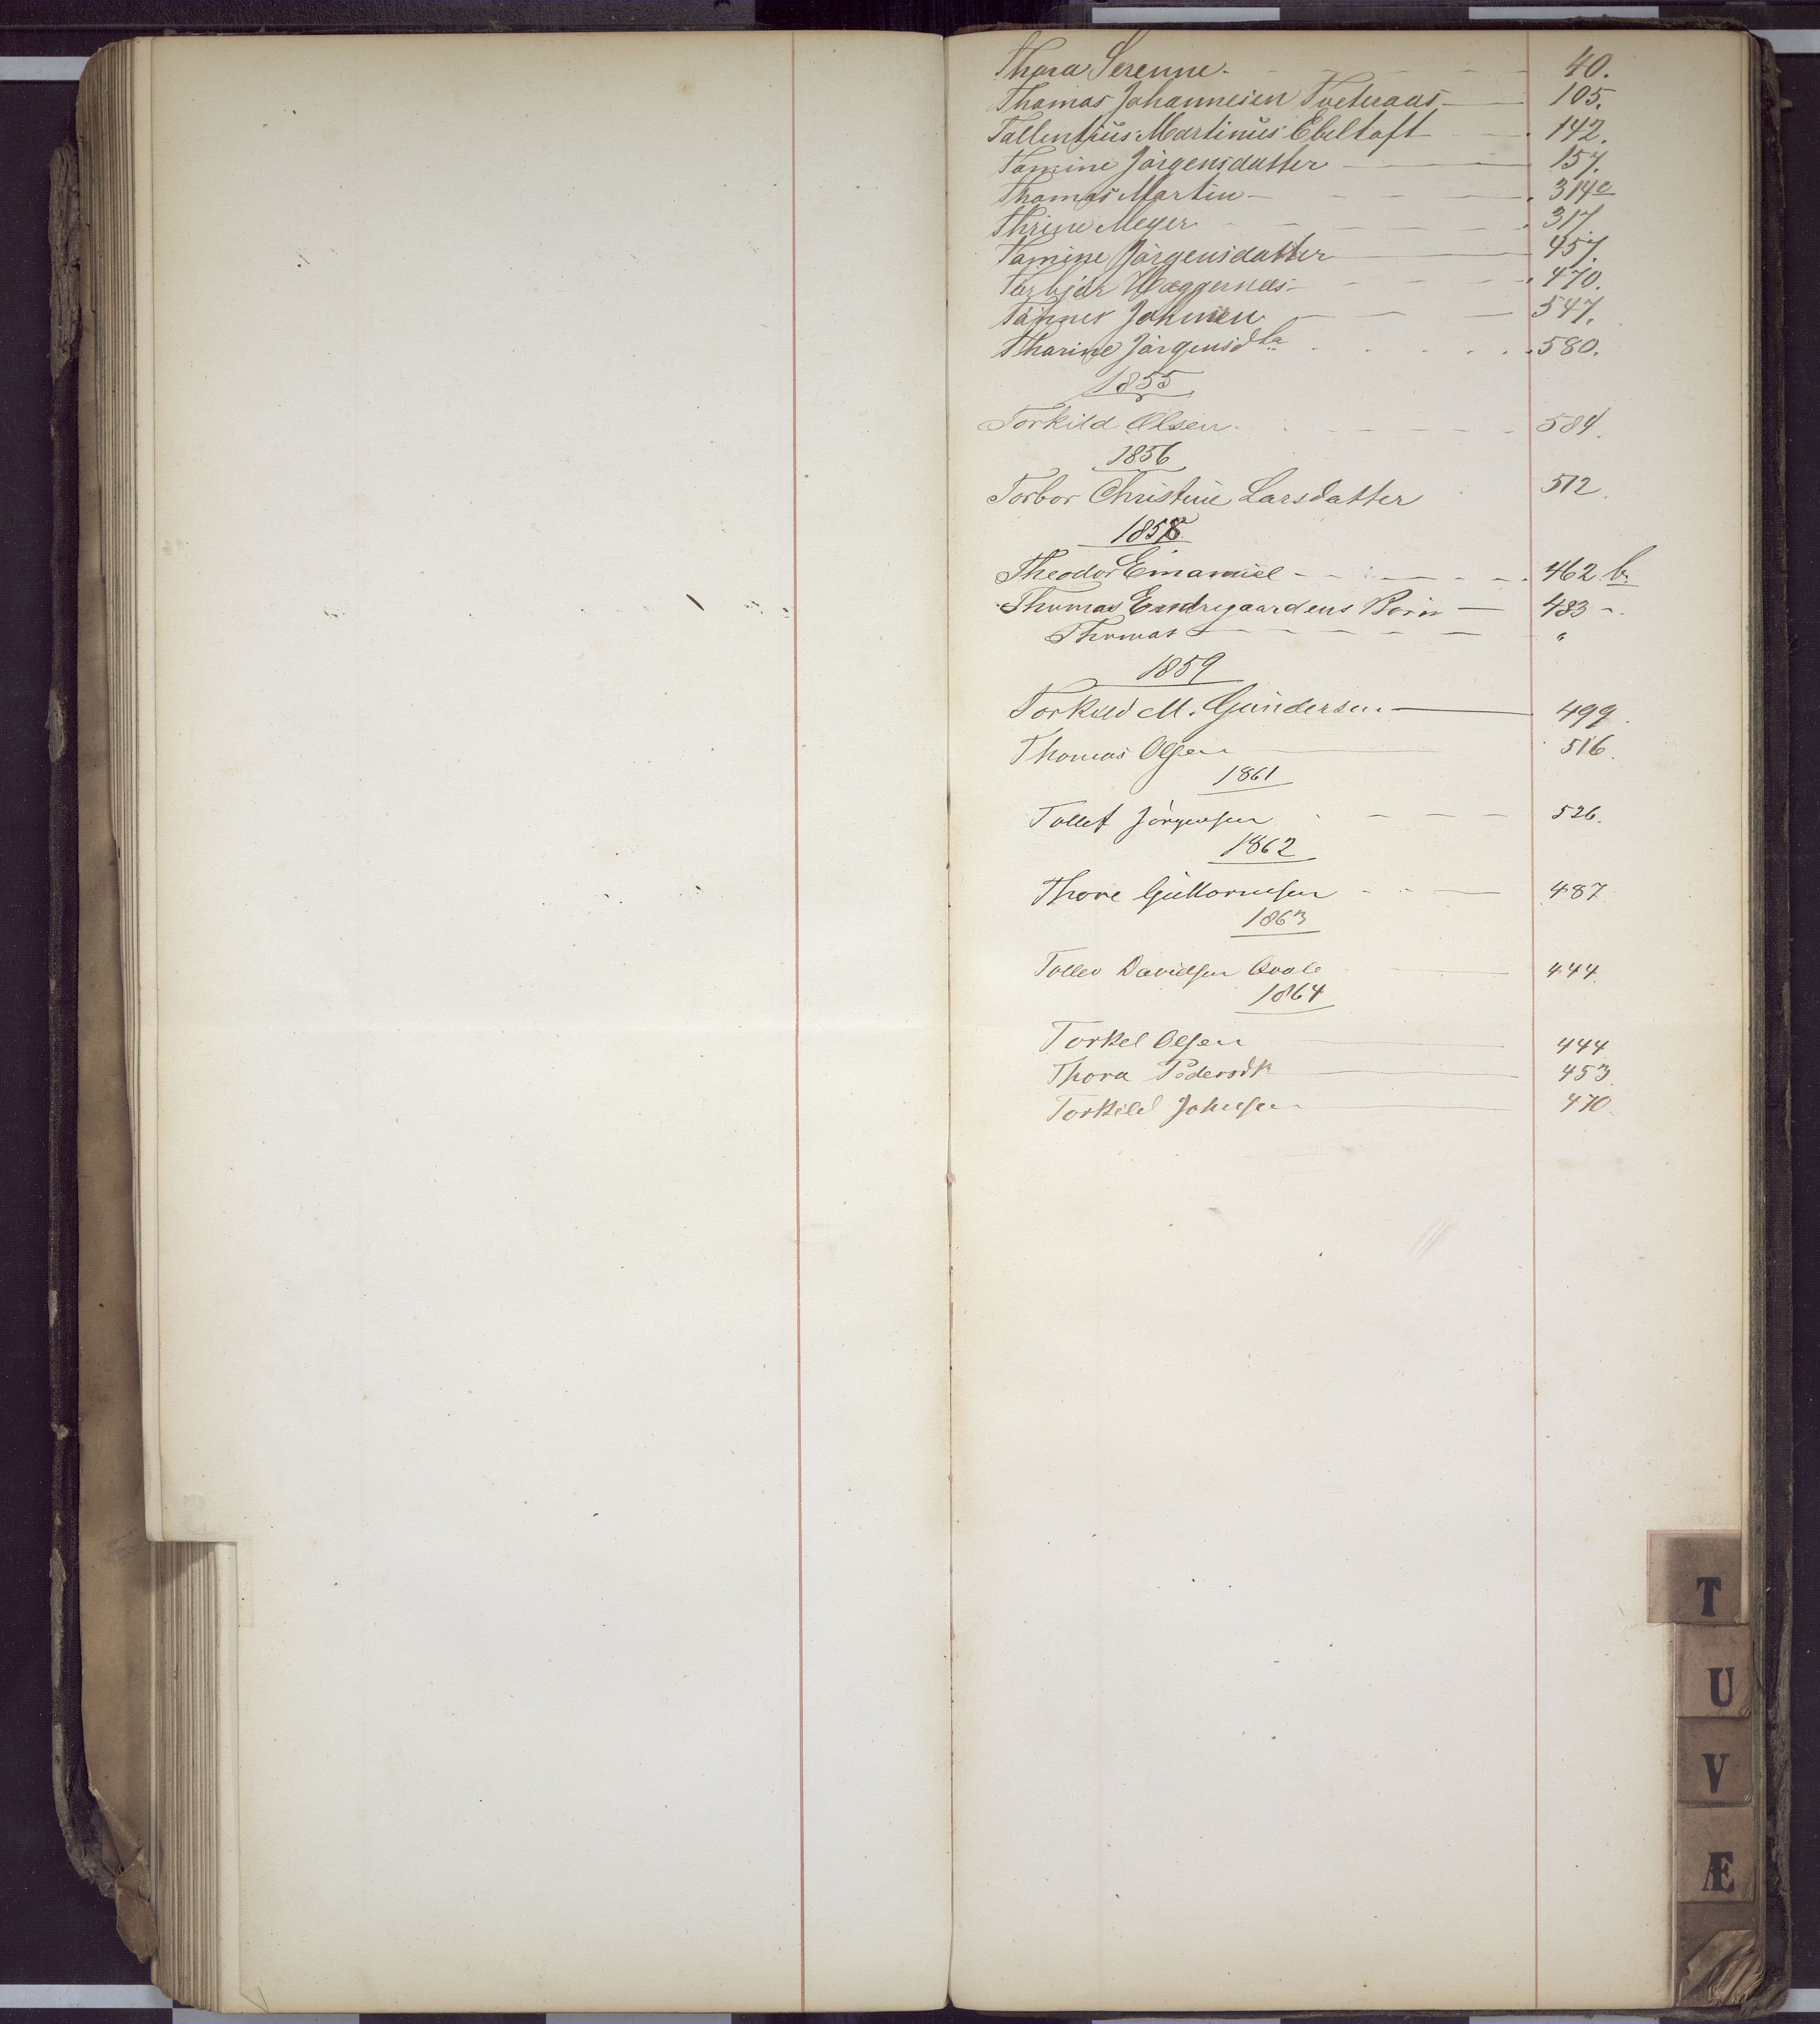 Thora Serenne. 40.
Thomas Johannesen Tveteraas 105.
Tallentius Martinus Ebeltoft 142.
Tomine Jörgensdatter 157.
Thomas Martin 314c
Thrine Meyer 317
Tomine Jörgensdatter 457.
Torbjör Hæggernæs 470.
Tönnes Johnsen 547.
Tharine Jörgensd 580.
1855
Torkild Olsen. 584.
1856
Torbor Christine Larsdatter 512.
1858.
Theodor Emanuel 462 b.
Thomas Endregaardens Börn 483
Thomas "
1859
Torkild M. Gundersen. 499.
Thomas Olsen 516.
1861
Tollef Jörgensen 526.
1862
Thore Guttormsen 487
1863
Tollev Davidsen Qvale 444.
1864
Torkel Olsen 444
Thora Pedersdtr 453.
Torkild Johnsen 470.
T
U
V
Æ